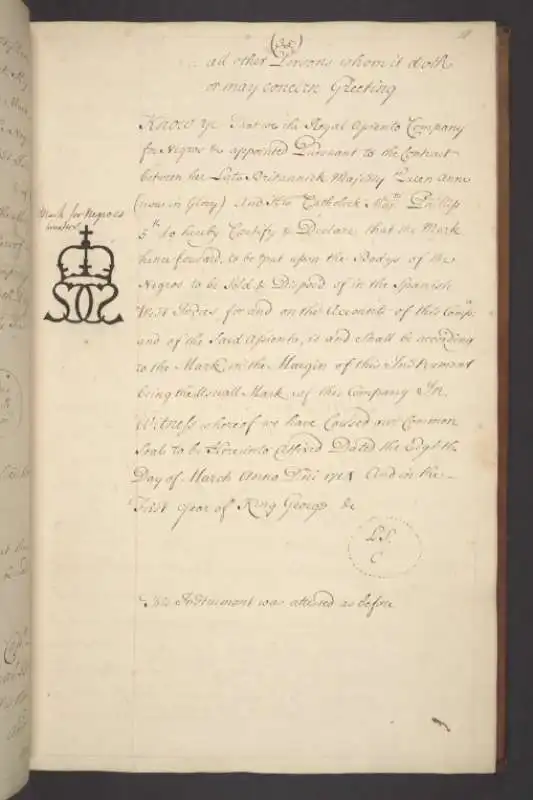 all other Persons whom it doth
or may concern Greeting
Know ye That we the Royal Assiento Company
for Negros & appointed Pursuant to the Contract
between her Late Britannick Majesty Queen Anne
(now in Glory) And His Catholick Maj.ty Phillip
5th Do hereby Certify & Declare that the Mark
hence forward, to be put upon the Bodys of the
Negros to be Sold & Disposd of in the Spanish
West Indies for and on the Accounts of this Comp.
and of the Said Assiento, is and Shall be according
to the Mark in the Margin of this Instrument
being the Usuall Mark of this Company In
Witness whereof we have Caused our Common
Seal to be Hereunto Affixed Dated the Eighth
Day of March Anno Dni 171 And in the
First year of King George &c
L.S.
C
This Instrument was attested as before
Mark for Negroes